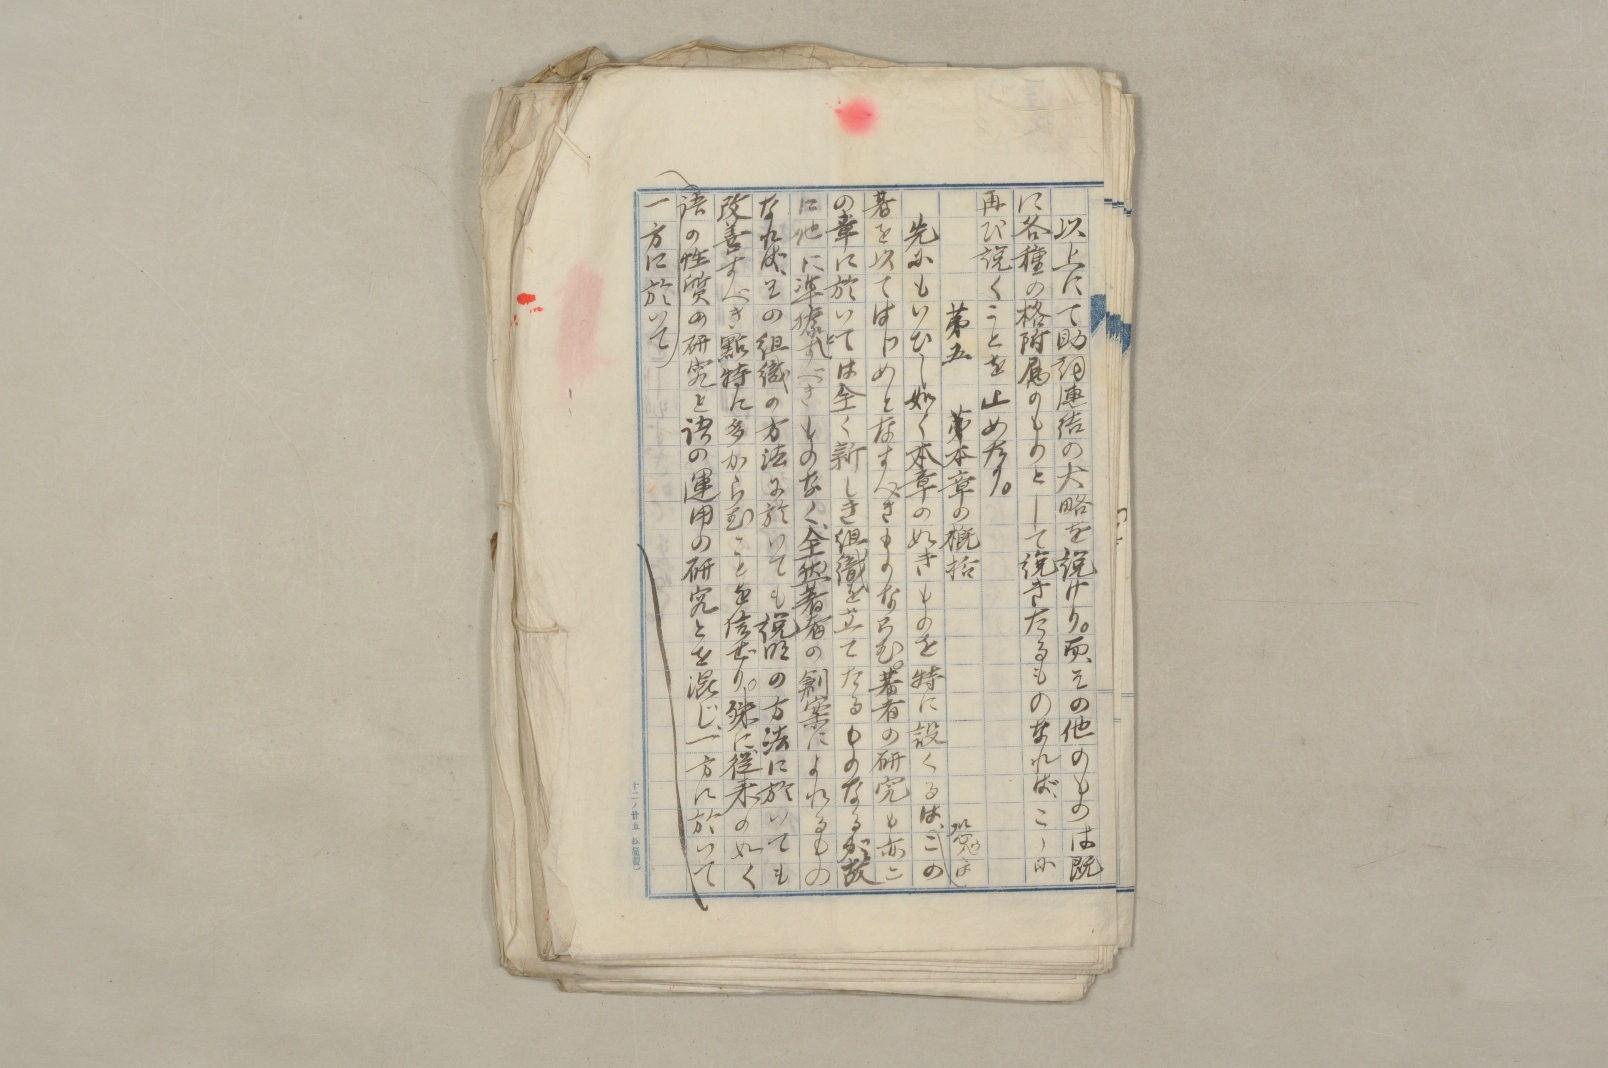 以上にて助詞連結の大略を説けり。而、その他のものは既
に各種の格附属のものとして説きたるものなれば、こゝに
再び説くことを止めたり。
第五 第本章の概括
先にもいひし如く本章の如きものを特に設くるは、この
著を以てはじめとなすべきものならむ。著者の研究も亦こ
の章に於いては全く新しき組織を立てたるものなるが故
に他に準據すべきものなく、全然著者の創案によれるもの
なれば、その組織の方法に於いても説明の方法に於いても
改善すべき點特に多からむことを信ぜり。殊に従来の如く
語の性質の研究と語の運用の研究とを混じ、一方に於いて
一方に於いて